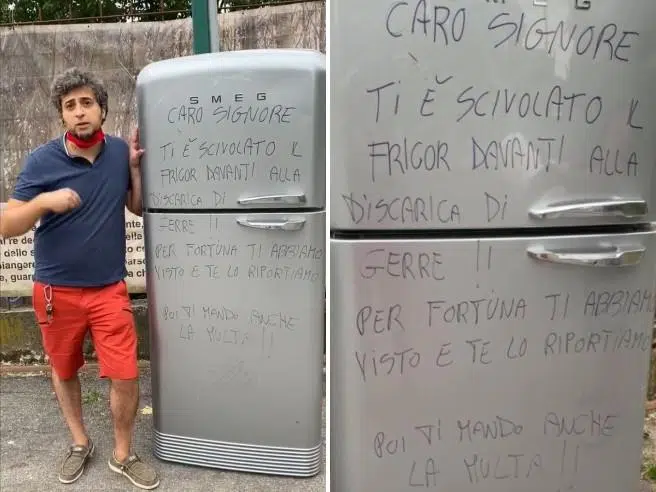 SMEG
CARO SIGNORE
TI È SCIVOLATO IL
FRIGOR DAVANTI ALLA
DISCARICA DI
GERRE !!
PER FORTUNA TI ABBIAMO
VISTO E TE LO RIPORTIAMO
POI TI MANDO ANCHE
LA MULTA !!
CARO SIGNORE
TI È SCIVOLATO IL
FRIGOR DAVANTI ALLA
DISCARICA DI
GERRE !!
PER FORTUNA TI ABBIAM
VISTO E TE LO RIPORTIAMO
POI TI MANDO ANCHE
LA MULTA !!